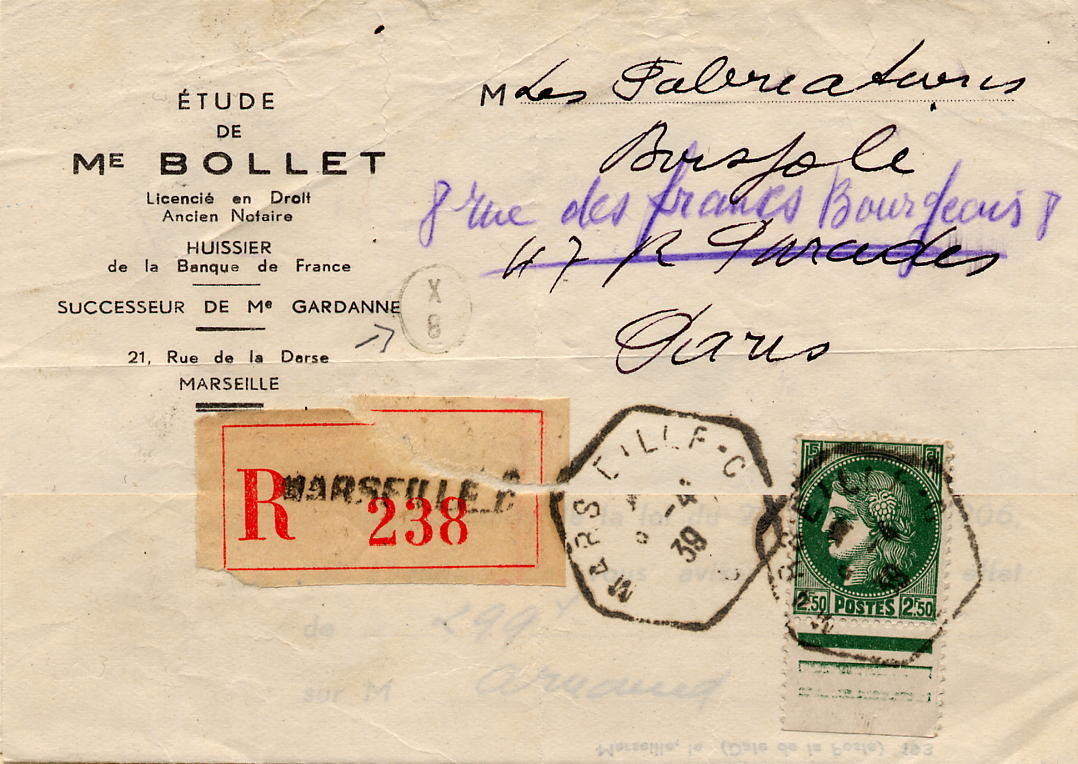 ÉTUDE
DE
ME BOLLET
Licencié en Droit
Ancien Notaire
HUISSIER
de la Banque de France
SUCCESSEUR DE Me GARDANNE
21, Rue de la Darse
MARSEILLE
M Les Fabrications
8 rue des francs Bourgeois 8
47 R
Paris
X
8
R MARSEILLE C
238
MARSEILLE-C
39
2F50 POSTES 2F50
de la loi du
vous avise effet
de 299
sur M Armand
Marseille, le (Date de la Poste) 193